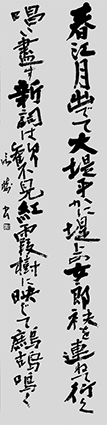 春江月出でて大堤平かに堤上の女郎袂を連ねて行く
唱い盡す新詞は歓不見紅霞樹に映じて鷓鴣鳴く